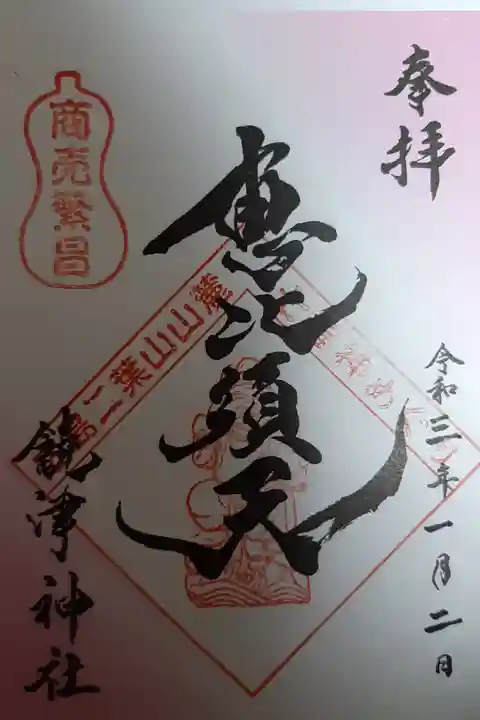 奉拝
令和三年一月二日
恵比須天
商売繁昌
二葉山山麓
饒津神社